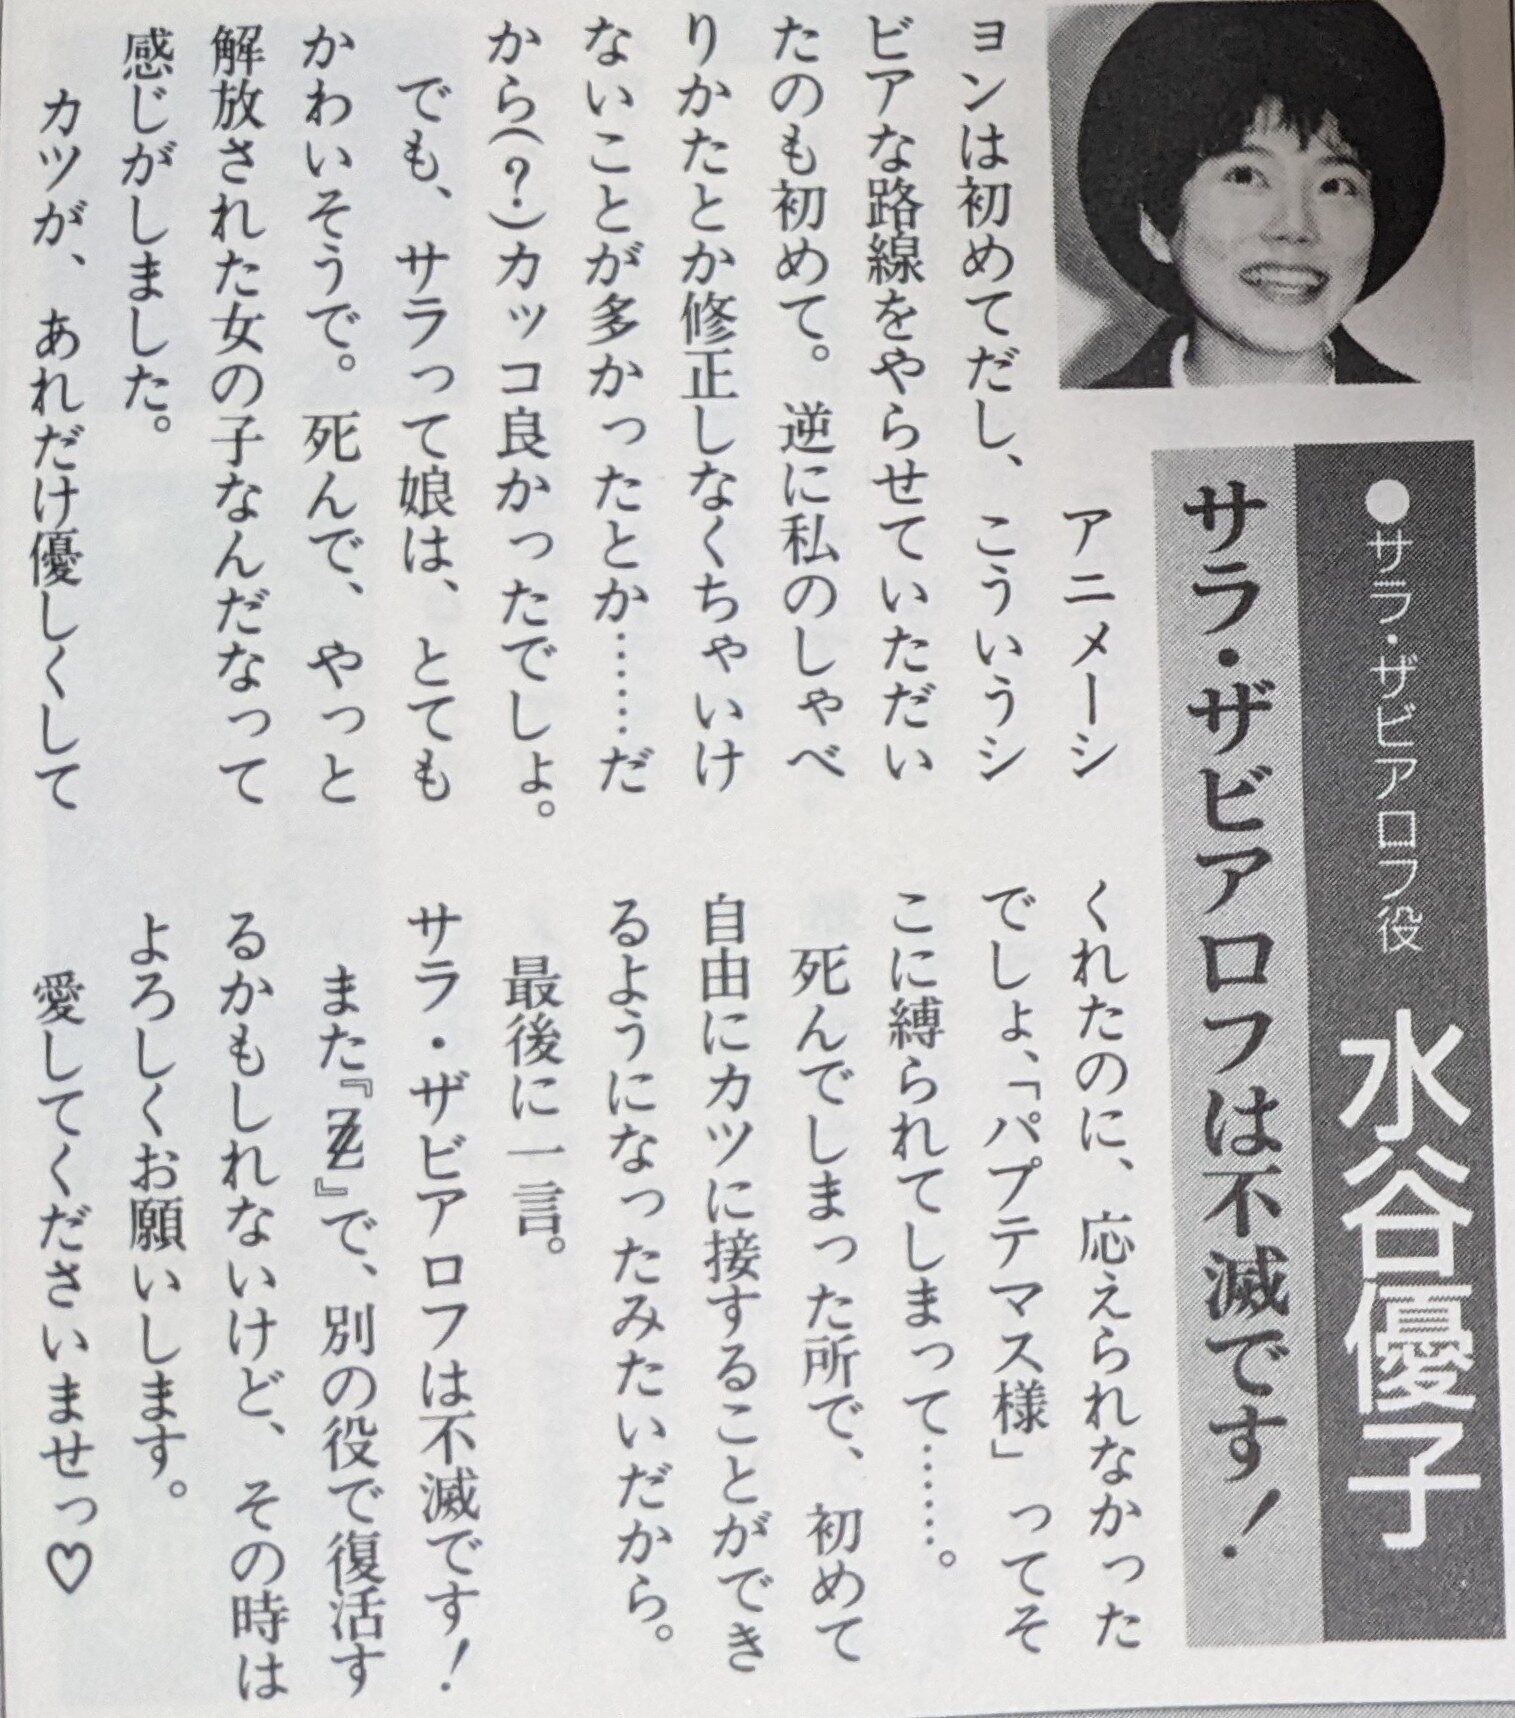 ●サラ・ザビアロフ役 水谷優子
サラ・ザビアロフは不滅です！
アニメーシ
ョンは初めてだし、こういうシ
ビアな路線をやらせていただい
たのも初めて。逆に私のしゃべ
りかたとか修正しなくちゃいけ
ないことが多かったとか……だ
から(？)カッコ良かったでしょ。
でも、サラって娘は、とても
かわいそうで。死んで、やっと
解放された女の子なんだなって
感じがしました。
カツが、あれだけ優しくして
くれたのに、応えられなかった
でしょ、「パプテマス様」ってそ
こに縛られてしまって……。
死んでしまった所で、初めて
自由にカツに接することができ
るようになったみたいだから。
最後に一言。
サラ・ザビアロフは不滅です！
また『ZZ』で、別の役で復活す
るかもしれないけど、その時は
よろしくお願いします。
愛してくださいませっ♡